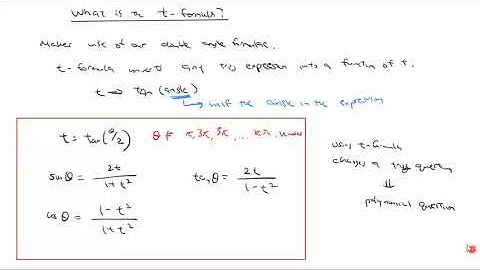 What is the t-formula?
Makes use of our double angle formulae.
t-formula converts any trig expression into a function of t.
t ⇒ tan (angle)
→ half the angle in the expression
t = tan(θ/2) θ ≠ π, 3π, 5π, ... kπ, k odd
sinθ = 2t / 1+t² tanθ = 2t / 1-t²
cosθ = 1-t² / 1+t²
using t-formula
changes a trig question
⇓
polynomial question